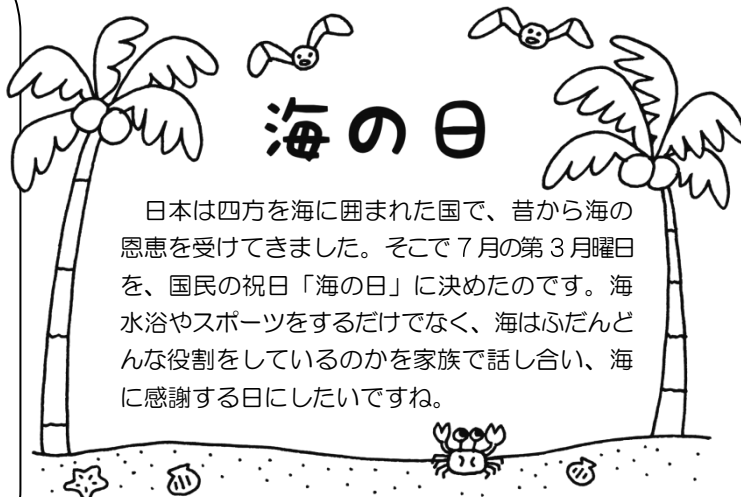 海の日
　日本は四方を海に囲まれた国で、昔から海の
恩恵を受けてきました。そこで７月の第３月曜日
を、国民の祝日「海の日」に決めたのです。海
水浴やスポーツをするだけでなく、海はふだんど
んな役割をしているのかを家族で話し合い、海
に感謝する日にしたいですね。